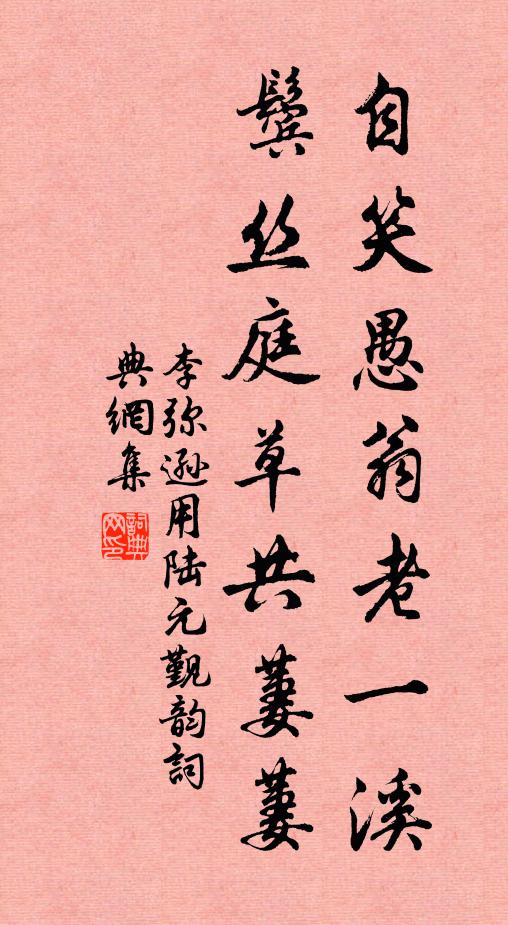 自笑愚翁老一溪
鬓丝庭草共萋萋
李弥遜用陆元覲韵詞
典網集
詞典
网印